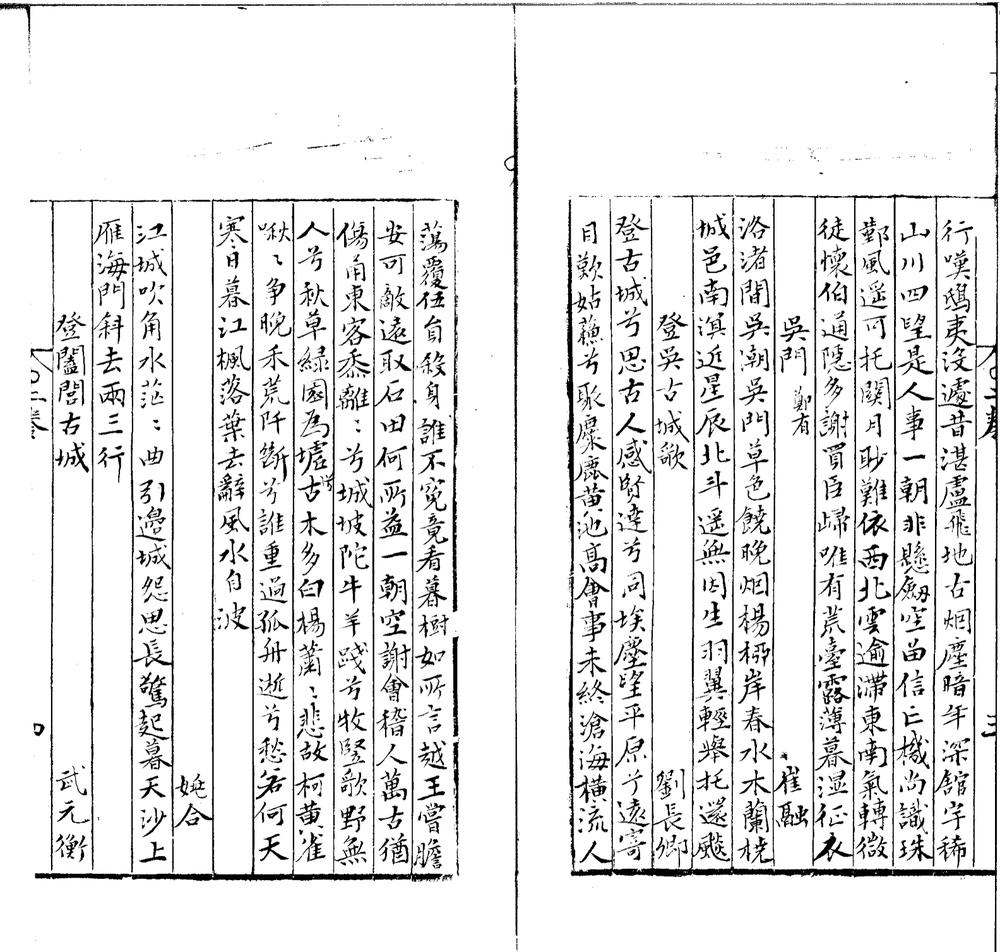 行嘆鴟夷沒遽昔湛盧飛地古烟塵暗年深館宇稀
山川四望是人事一朝非懸劔空留信亡檝尚識珠
鄞風遥可托関月耿難依西北雲逾滞東南氣轉微
徒懷伯通隱多謝買臣歸唯有荒臺露薄暮湿征衣
吳門 鄭有 崔融
洛渚閶吳潮吳門草色饒晚烟楊栁岸春水木蘭橈
城邑南溟近星辰北斗遥無因生羽翼輕舉托還飈
登吳古城歌 劉長卿
登古城兮思古人感賢達兮同埃塵望平原兮遠寄
目歎姑蘓兮聚麋鹿黄池髙會事未終滄海橫流人
蕩覆伍員殺身誰不寃竟看暮樹如所言越王嘗膽
安可敵遠取石田何所益一朝空謝會稽人萬古猶
傷甬東客黍離〻兮城坡陀牛羊踐兮牧竪歌野無
人兮秋草緑園為墟兮古木多白楊蕭〻悲故柯黄雀
啾〻争晚禾荒阡斷兮誰重過孤舟逝兮愁若何天
寒日暮江楓落葉去辭風水自波
姚合
江城吹角水茫〻曲引邉城怨思長驚起暮天沙上
雁海門斜去兩三行
登闔閭古城 武元衡